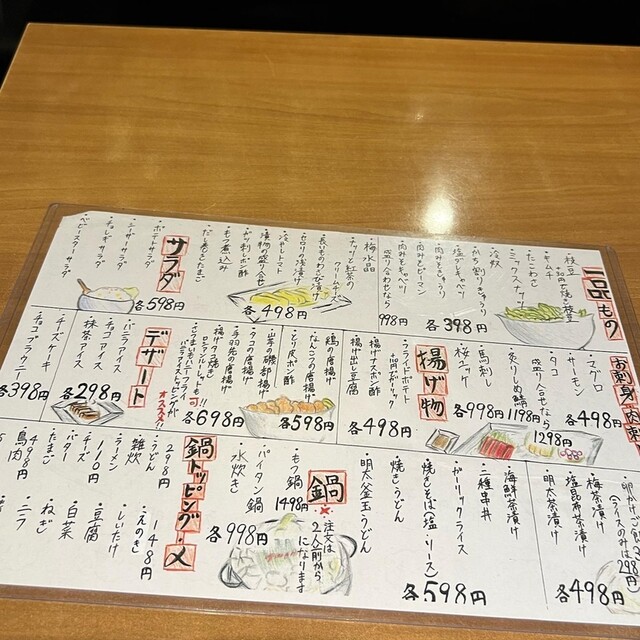 一品もの
枝豆
キムチ
たこわさ
ミックスナッツ
冷奴
がり割りきゅうり
塩ダレキャベツ
肉みそきゅうり
肉みそピーマン
肉みそキャベツ
各398円
肉みそ盛り合わせなら
998円
梅水晶
ナッツと紅茶の
クリームチーズ
長いものわさび漬け
セロリの浅漬け
冷やしトマト
漬物の盛り合せ
ずり刺しポン酢
もつ煮込み
だし巻きたまご
各498円
サラダ
ポテトサラダ
シーザーサラダ
チョレギサラダ
ベビースターサラダ
各598円
お刺身
マグロ
サーモン
タコ
各498円
盛り合せなら
1298円
炙りしめ鯖
1198円
馬刺し
桜ユッケ
各998円
揚げ物
フライドポテト
揚げナスポン酢
揚げ出し豆腐
各498円
鶏の唐揚げ
なんこつの唐揚げ
とり皮ポン酢
各598円
山芋の磯部揚げ
タコの唐揚げ
手羽先の唐揚げ
揚げタコ焼き
ロシアンルーレットも可!!
さつまいもハニーフライ
バニラアイストッピングが
オススメ!!
各698円
デザート
バニラアイス
チョコアイス
抹茶アイス
各298円
チーズケーキ
チョコブラウニー
各398円
梅茶漬け
塩昆布茶漬け
明太茶漬け
各498円
海鮮茶漬け
二種串丼
ガーリックライス
焼きそば(塩・ソース)
焼きうどん
明太釜玉うどん
各598円
鍋
注文は
2人前から
になります
もつ鍋
1498円
パイタン鍋
水炊き
各998円
鍋トッピング・〆
298円
うどん
雑炊
ラーメン
チーズ
バター
たまご
498円
鳥肉
148円
えのき
しいたけ
豆腐
白菜
ねぎ
ニラ